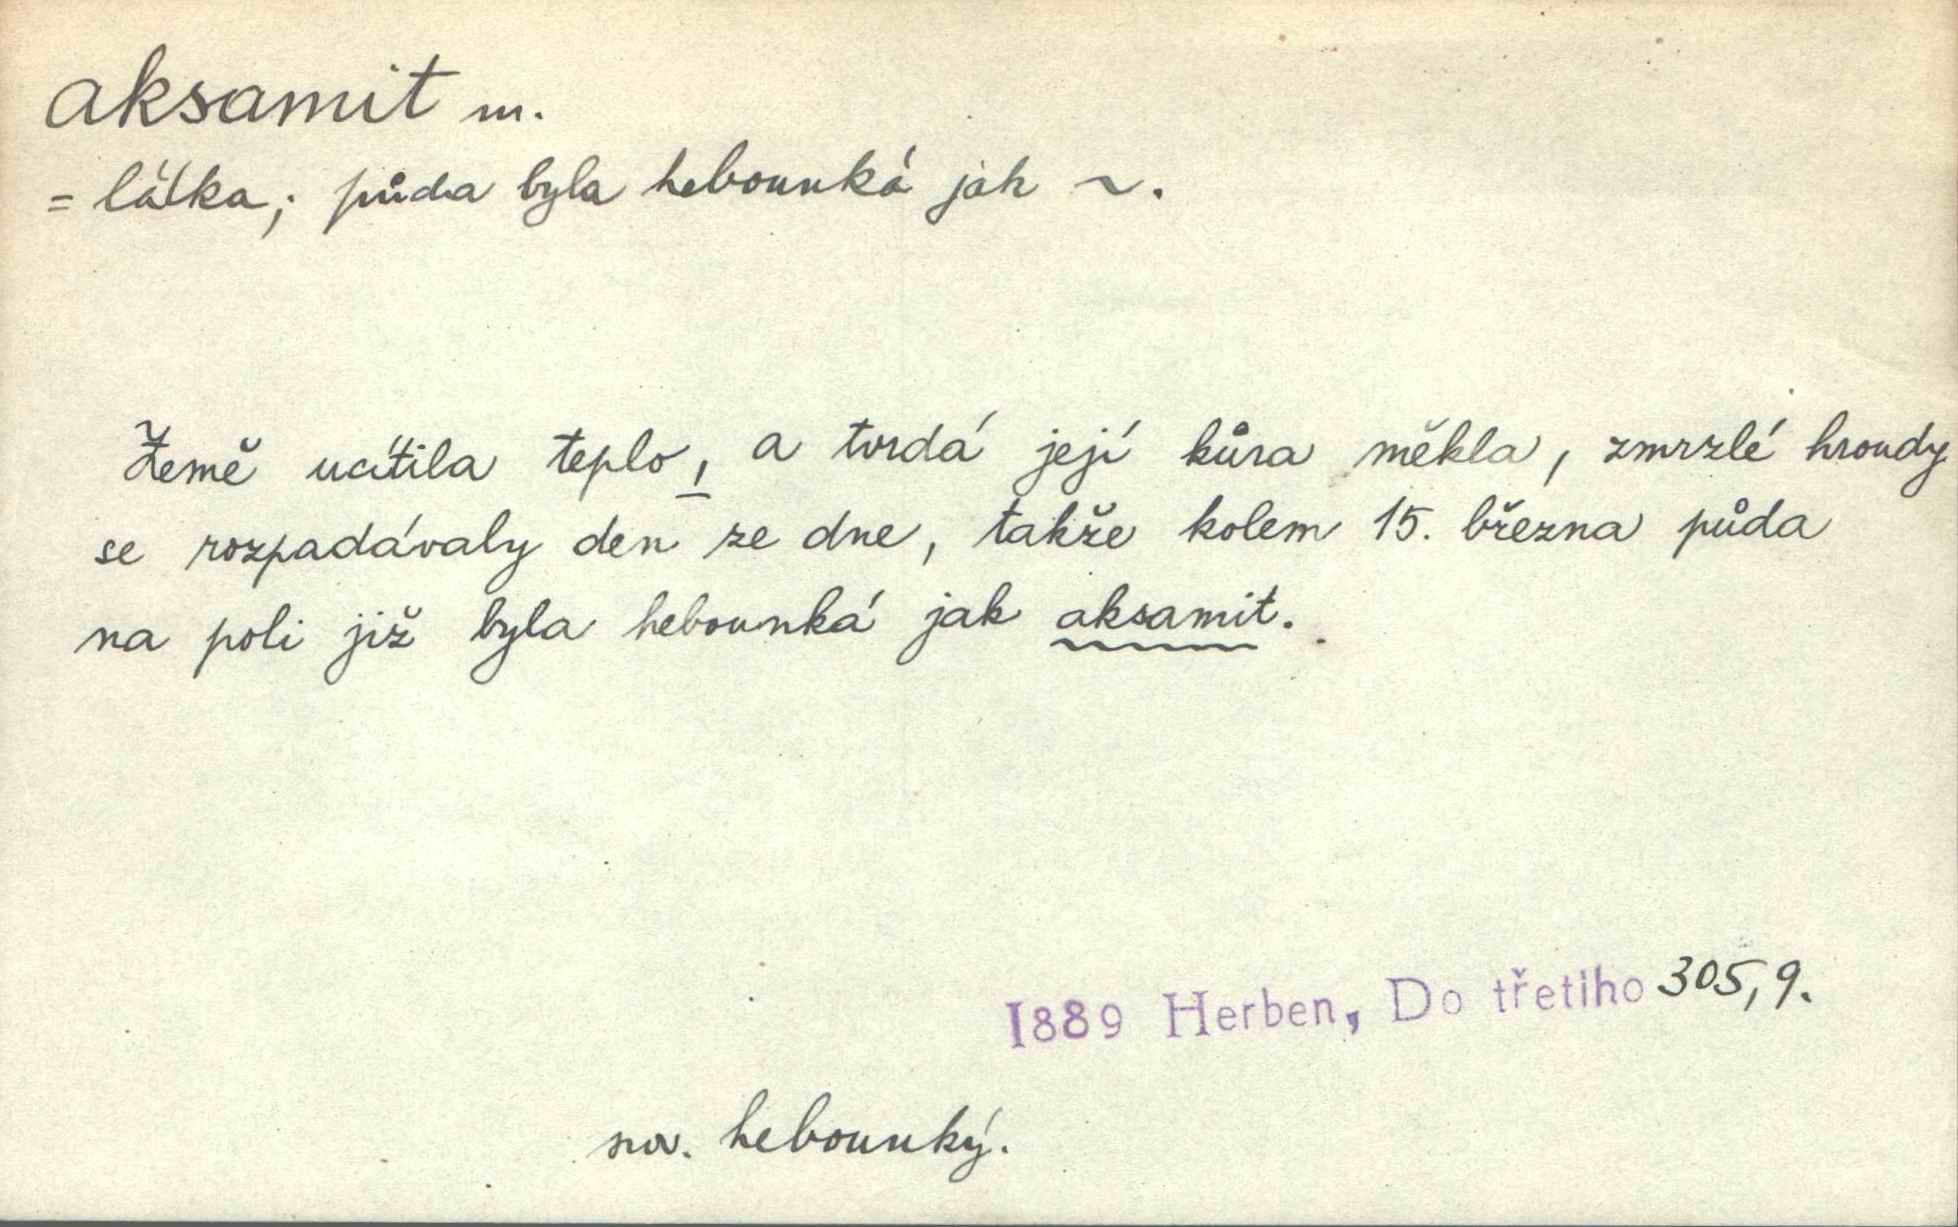 aksamit m.
= látka; půda byla hebounká jak ~.
Země ucítila teplo, a tvrdá její kůra měkla, zmrzlé hroudy
se rozpadávaly den ze dne, takže kolem 15. března půda
na poli již byla hebounká jak aksamit.
1889 Herben, Do třetího 305,9.
sr. hebounký.